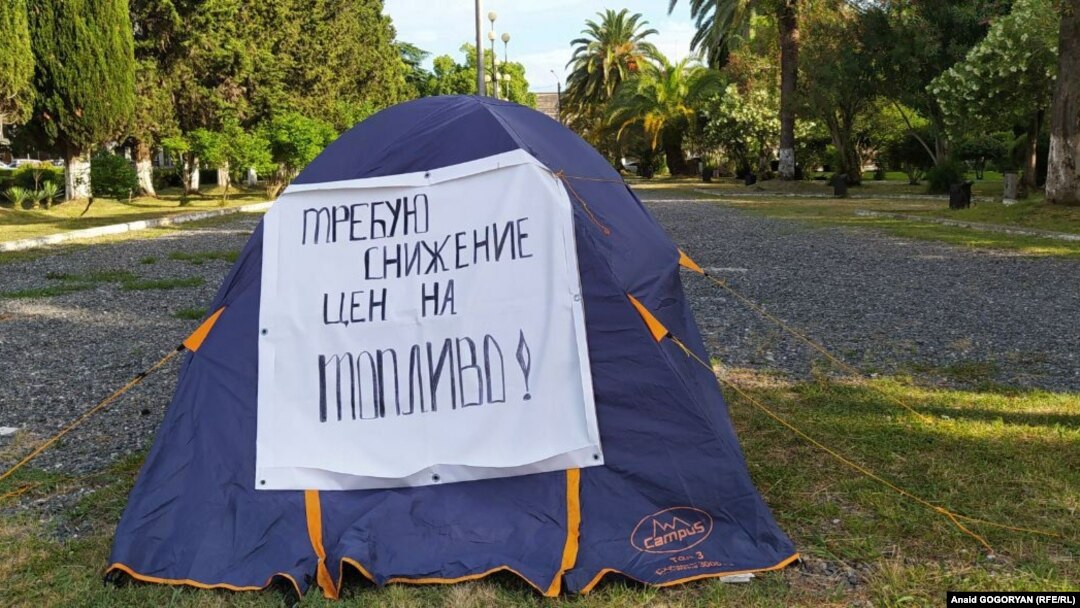 ТРЕБУЮ
СНИЖЕНИЕ
ЦЕН НА
ТОПЛИВО!
campus
3
Anaid GOGORYAN (RFE/RL)